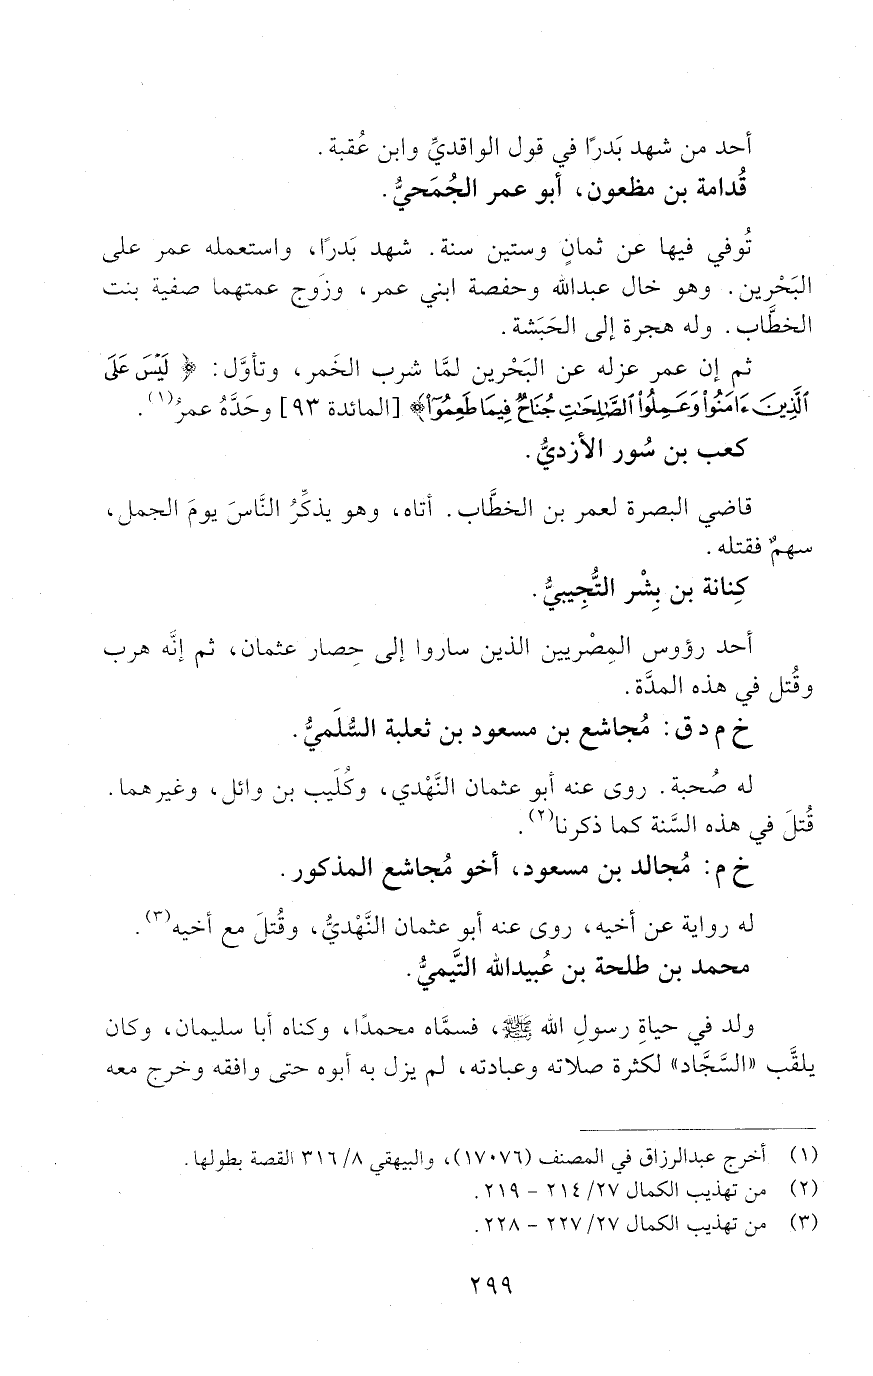 أحد من شهد بَدرًا في قول الواقديِّ وابن عُقبة.
قُدامة بن مظعون، أبو عمر الجُمَحيُّ.
تُوفي فيها عن ثمانٍ وستين سنة. شهد بَدرًا، واستعمله عمر على
البَحْرين. وهو خال عبدالله وحفصة ابني عمر، وزَوج عمتهما صفية بنت
الخطَّاب. وله هجرة إلى الحَبَشة.
ثم إن عمر عزله عن البَحْرين لمَّا شرب الخَمر، وتأوَّل: ﴿ لَيْسَ عَلَى
ٱلَّذِينَ ءَامَنُوا۟ وَعَمِلُوا۟ ٱلصَّـٰلِحَـٰتِ جُنَاحٌ فِيمَا طَعِمُوٓا۟﴾ [المائدة ٩٣] وحَدَّهُ عمرُ(١).
كعب بن سُور الأزديُّ.
قاضي البصرة لعمر بن الخطَّاب. أتاه، وهو يذكِّرُ النَّاسَ يومَ الجمل،
سهمٌ فقتله.
كِنانة بن بِشْر التُّجِيبيُّ.
أحد رؤوس المِصْريين الذين ساروا إلى حِصار عثمان، ثم إنَّه هرب
وقُتل في هذه المدَّة.
خ م د ق: مُجاشع بن مسعود بن ثعلبة السُّلَميُّ.
له صُحبة. روى عنه أبو عثمان النَّهْدي، وكُلَيب بن وائل، وغيرهما.
قُتلَ في هذه السَّنة كما ذكرنا(٢).
خ م: مُجالد بن مسعود، أخو مُجاشع المذكور.
له رواية عن أخيه، روى عنه أبو عثمان النَّهْديُّ، وقُتلَ مع أخيه(٣).
محمد بن طلحة بن عُبيدالله التَّيميُّ.
ولد في حياةِ رسولِ الله ﷺ، فسمَّاه محمدًا، وكناه أبا سليمان، وكان
يلقَّب «السَّجَّاد» لكثرة صلاته وعبادته، لم يزل به أبوه حتى وافقه وخرج معه
(١) أخرج عبدالرزاق في المصنف (١٧٠٧٦)، والبيهقي ٨/ ٣١٦ القصة بطولها.
(٢) من تهذيب الكمال ٢٧/ ٢١٤ - ٢١٩.
(٣) من تهذيب الكمال ٢٧/ ٢٢٧ - ٢٢٨.
٢٩٩